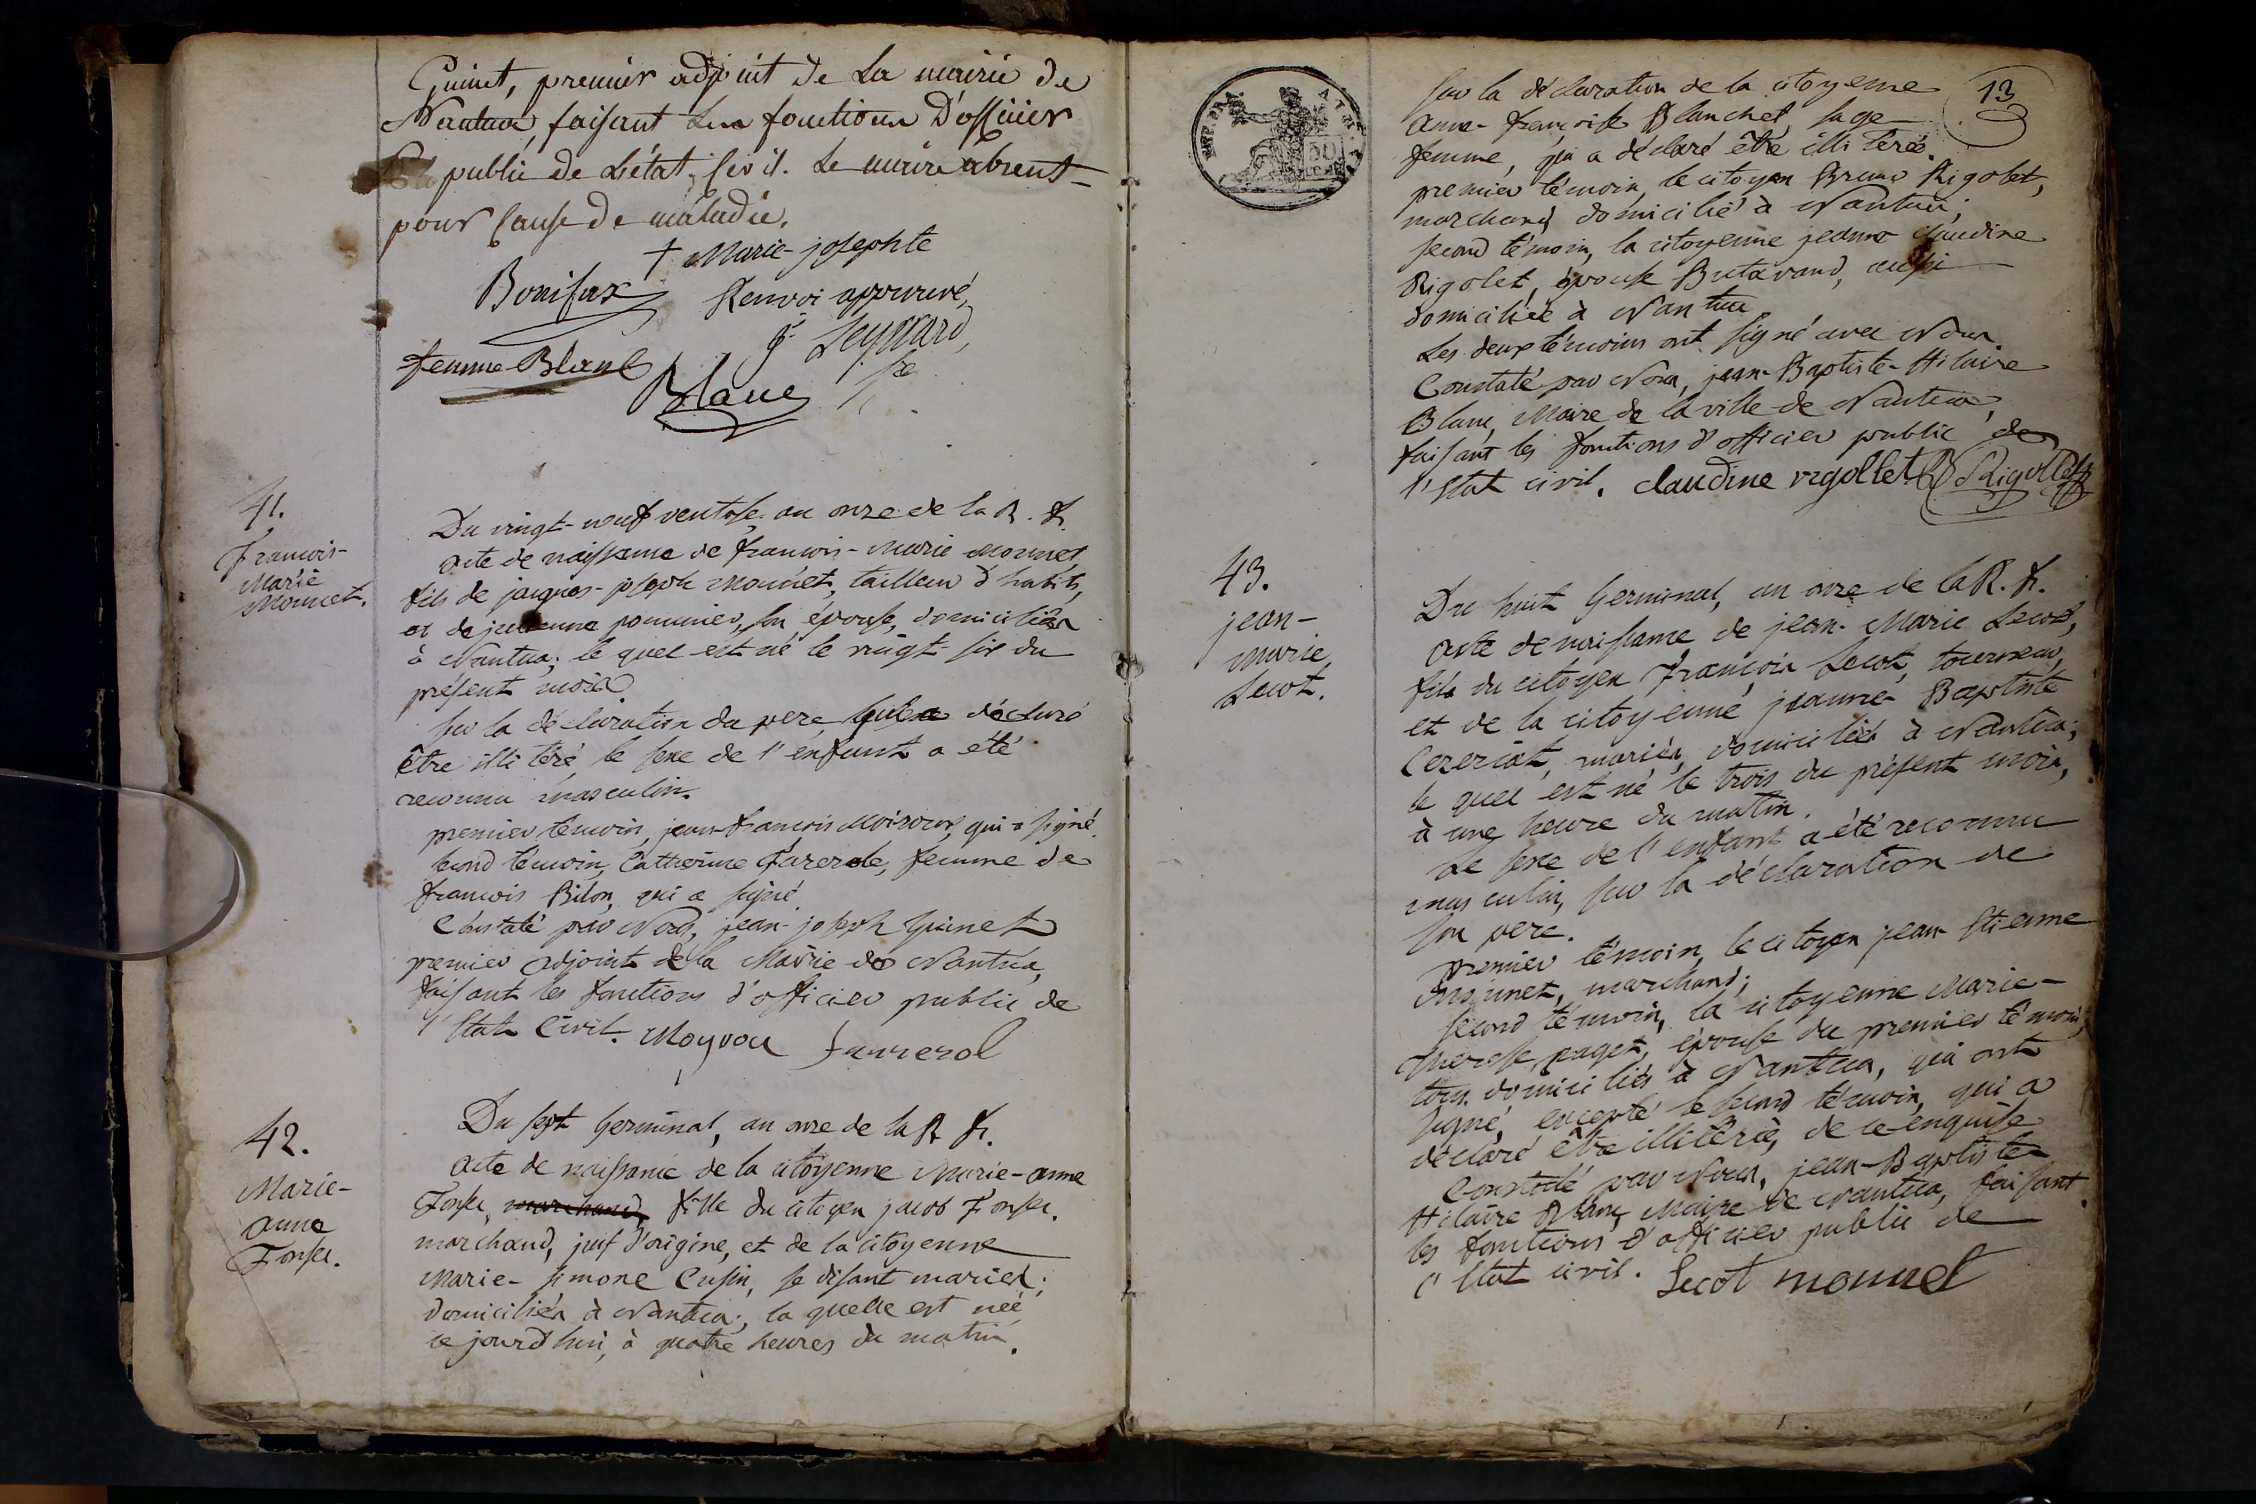 Guinet, premier adjoint de La mairie de
Nantua, faisant Les fonctions D'officier
public de L'état Civil. Le maire absent
pour Cause de maladie.
+ Marie-josephte
Bonifax Renvoi approuvé,
Seyssard,
femme Blanc
Blanc
41.
François-
Marie
Mounet.
Du vingt-neuf ventose, an onze de la R. F.
acte de naissance de francois-Marie Mounet
fils de jaques-joseph Mounet, tailleur d'habits,
et de julienne pommier, son épouse, domiciliés
à Nantua; le quel est né le vingt-six du
présent mois
sur la déclaration du pere, qui a déclaré
être illitéré, le sexe de l'enfant a été
reconnu masculin.
premier témoin, jean-francois Moiroux, qui a signé.
second témoin, Catherine Farerole, femme de
francois Bilon, qui a signé.
Constaté par Nous, jean-joseph Guinet
premier adjoint de la Mairie de Nantua,
faisant les fonctions d'officier public de
l'Etat Civil. Moyrou farrerol
42.
Marie-
anne
Fonse.
Du sept Germinal, an onze de la R. F.
acte de naissance de la citoyenne Marie-anne
Fonse, marchand, fille du citoyen jacob Fonse.
marchand, juif d'origine, et de la citoyenne
Marie-simone Cusin, se disant mariés;
domiciliés à Nantua; la quelle est née
ce jourd'hui, à quatre heures du matin.
13
sur la déclaration de la citoyenne
anne-francoise Blanchet sage-
femme, qui a déclaré être illitérée.
premier témoin, le citoyen Bruno Rigolet,
marchand domicilié à Nantua;
second témoin, la citoyenne jeanne claudine
Rigolet, épouse Butavand, aussi
domiciliée à Nantua
Les deux témoins ont signé avec Nous.
Constaté par Nous, jean-Baptiste-Hilaire
Blanc, Maire de la ville de Nantua,
faisant les fonctions d'officier public de
l'Etat civil. claudine rigollet B Rigollet
43.
jean-
marie
Lecot.
Du huit Germinal, an onze de la R. F.
acte de naissance de jean-Marie Lecot,
fils du citoyen François Lecot, tourneur,
et de la citoyenne jeanne-Baptiste
Cezeriat, mariés, domiciliés à Nantua;
le quel est né le trois du présent mois,
à une heure du matin.
Le sexe de l'enfant a été reconnu
masculin, sur la déclaration de
son pere.
premier témoin, le citoyen jean Etienne
Mounet, marchand;
second témoin, la citoyenne Marie-
therese paget, épouse du premier témoin,
tous domiciliés à Nantua, qui ont
signé, excepté le second témoin, qui a
déclaré être illitérée, de ce enquise
Constaté par Nous, jean-Baptiste
Hilaire Blanc, Maire de Nantua, faisant
les fonctions d'officier public de
l'Etat civil. Lecot mounet